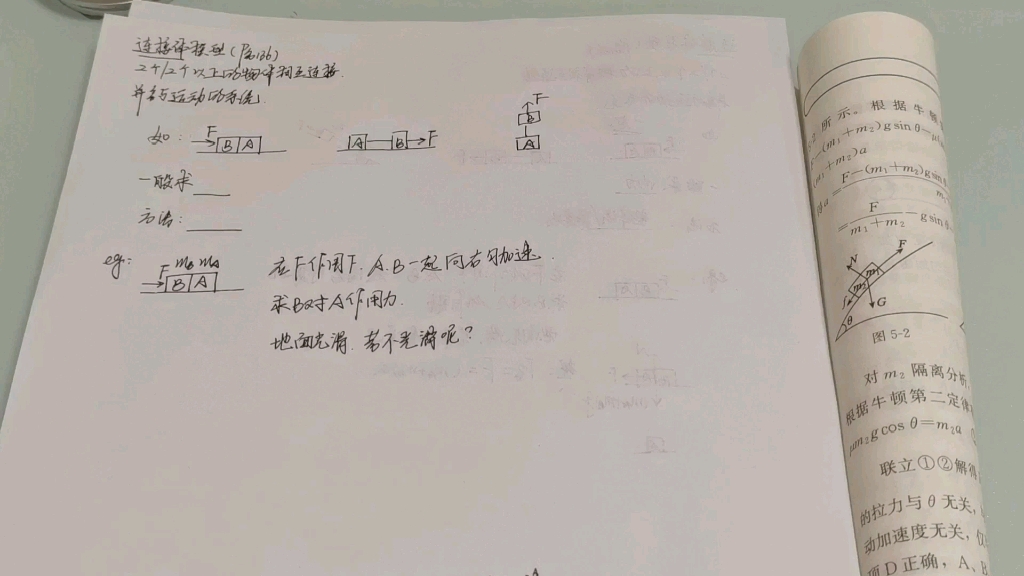 连接体模型(P136)
2个/2个以上的物体相互连接
并参与运动的系统
如: F B A
A B F
F B A
一般求
方法:
eg: F mB mA B A
在F作用下, A.B一起向右匀加速
求B对A作用力.
地面光滑. 若不光滑呢?
所示。根据牛
(m₁+m₂)g sinθ-μ
(m₁+m₂)a
a=F-(m₁+m₂)g sin
=F/(m₁+m₂)-g sinθ
N F m₁ m₂ f G θ
图 5-2
对 m₂ 隔离分析,
根据牛顿第二定律
μm₂g cos θ=m₂a
联立①②解得
的拉力与 θ 无关,
动加速度无关,仅
项 D 正确,A、B